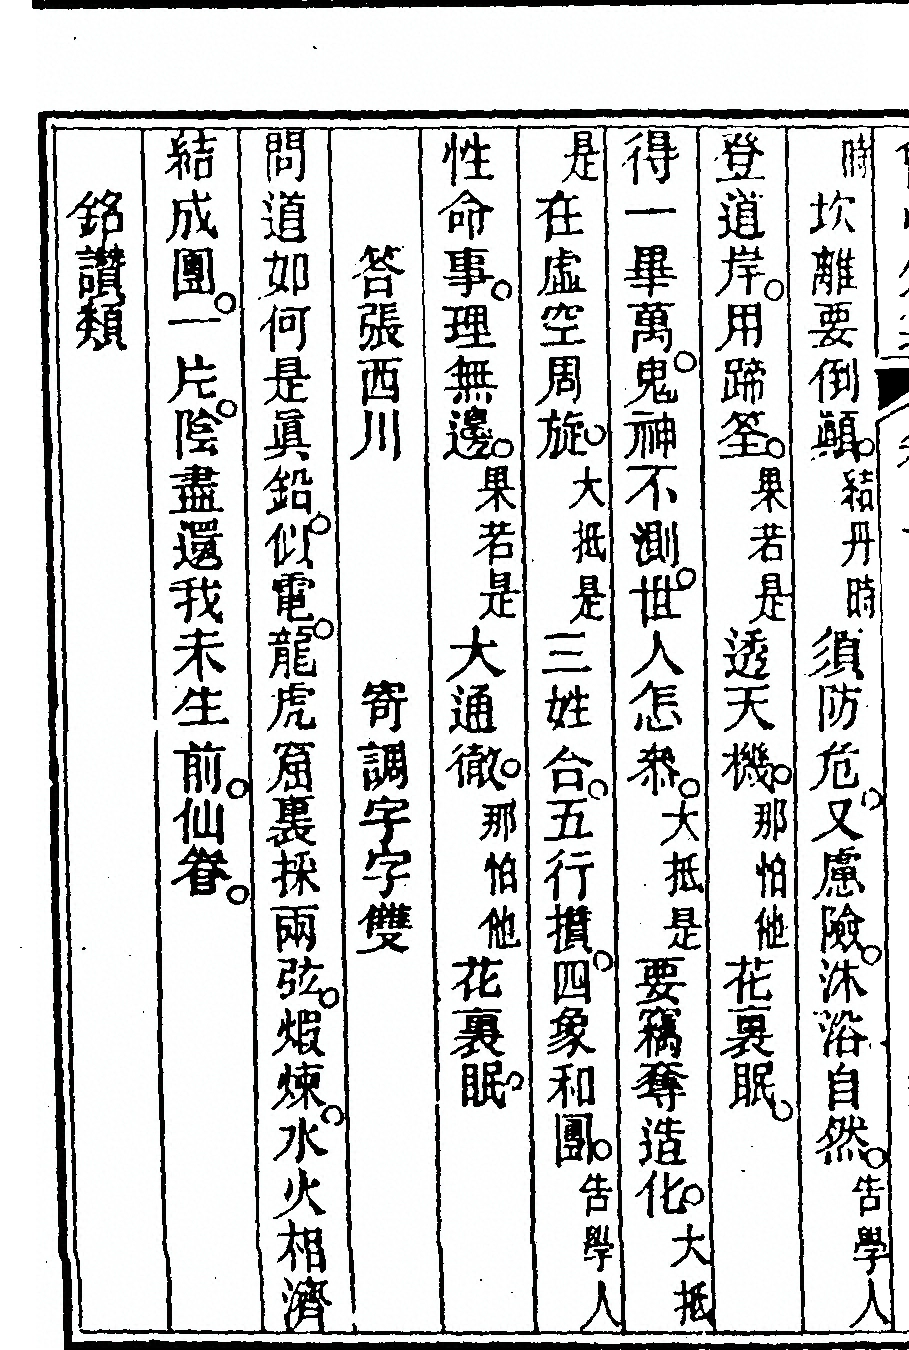 時坎離要倒顛。結丹時須防危。又慮險。沐浴自然。告學人
登道岸。用蹄筌。果若是透天機。那怕他花裏眠。
得一畢萬。鬼神不測。世人怎。大抵是要竊奪造化。大抵
是在虛空周旋。大抵是三姓合。五行攢。四象和團。告學人
性命事。理無邊。果若是大通徹。那怕他花裏眠。
答張西川　寄調字字雙
問道如何是眞鉛。似電。龍虎窟裏採兩弦。煆煉。水火相濟
結成團。一片。陰盡還我未生前。仙眷。
銘讚類